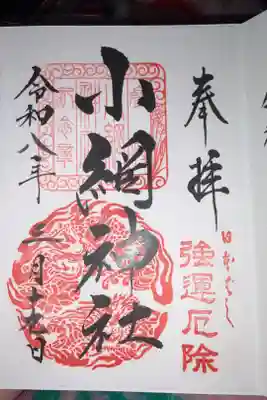 奉拝
日本ばし
強運厄除
小網神社
令和八年
三月十七日